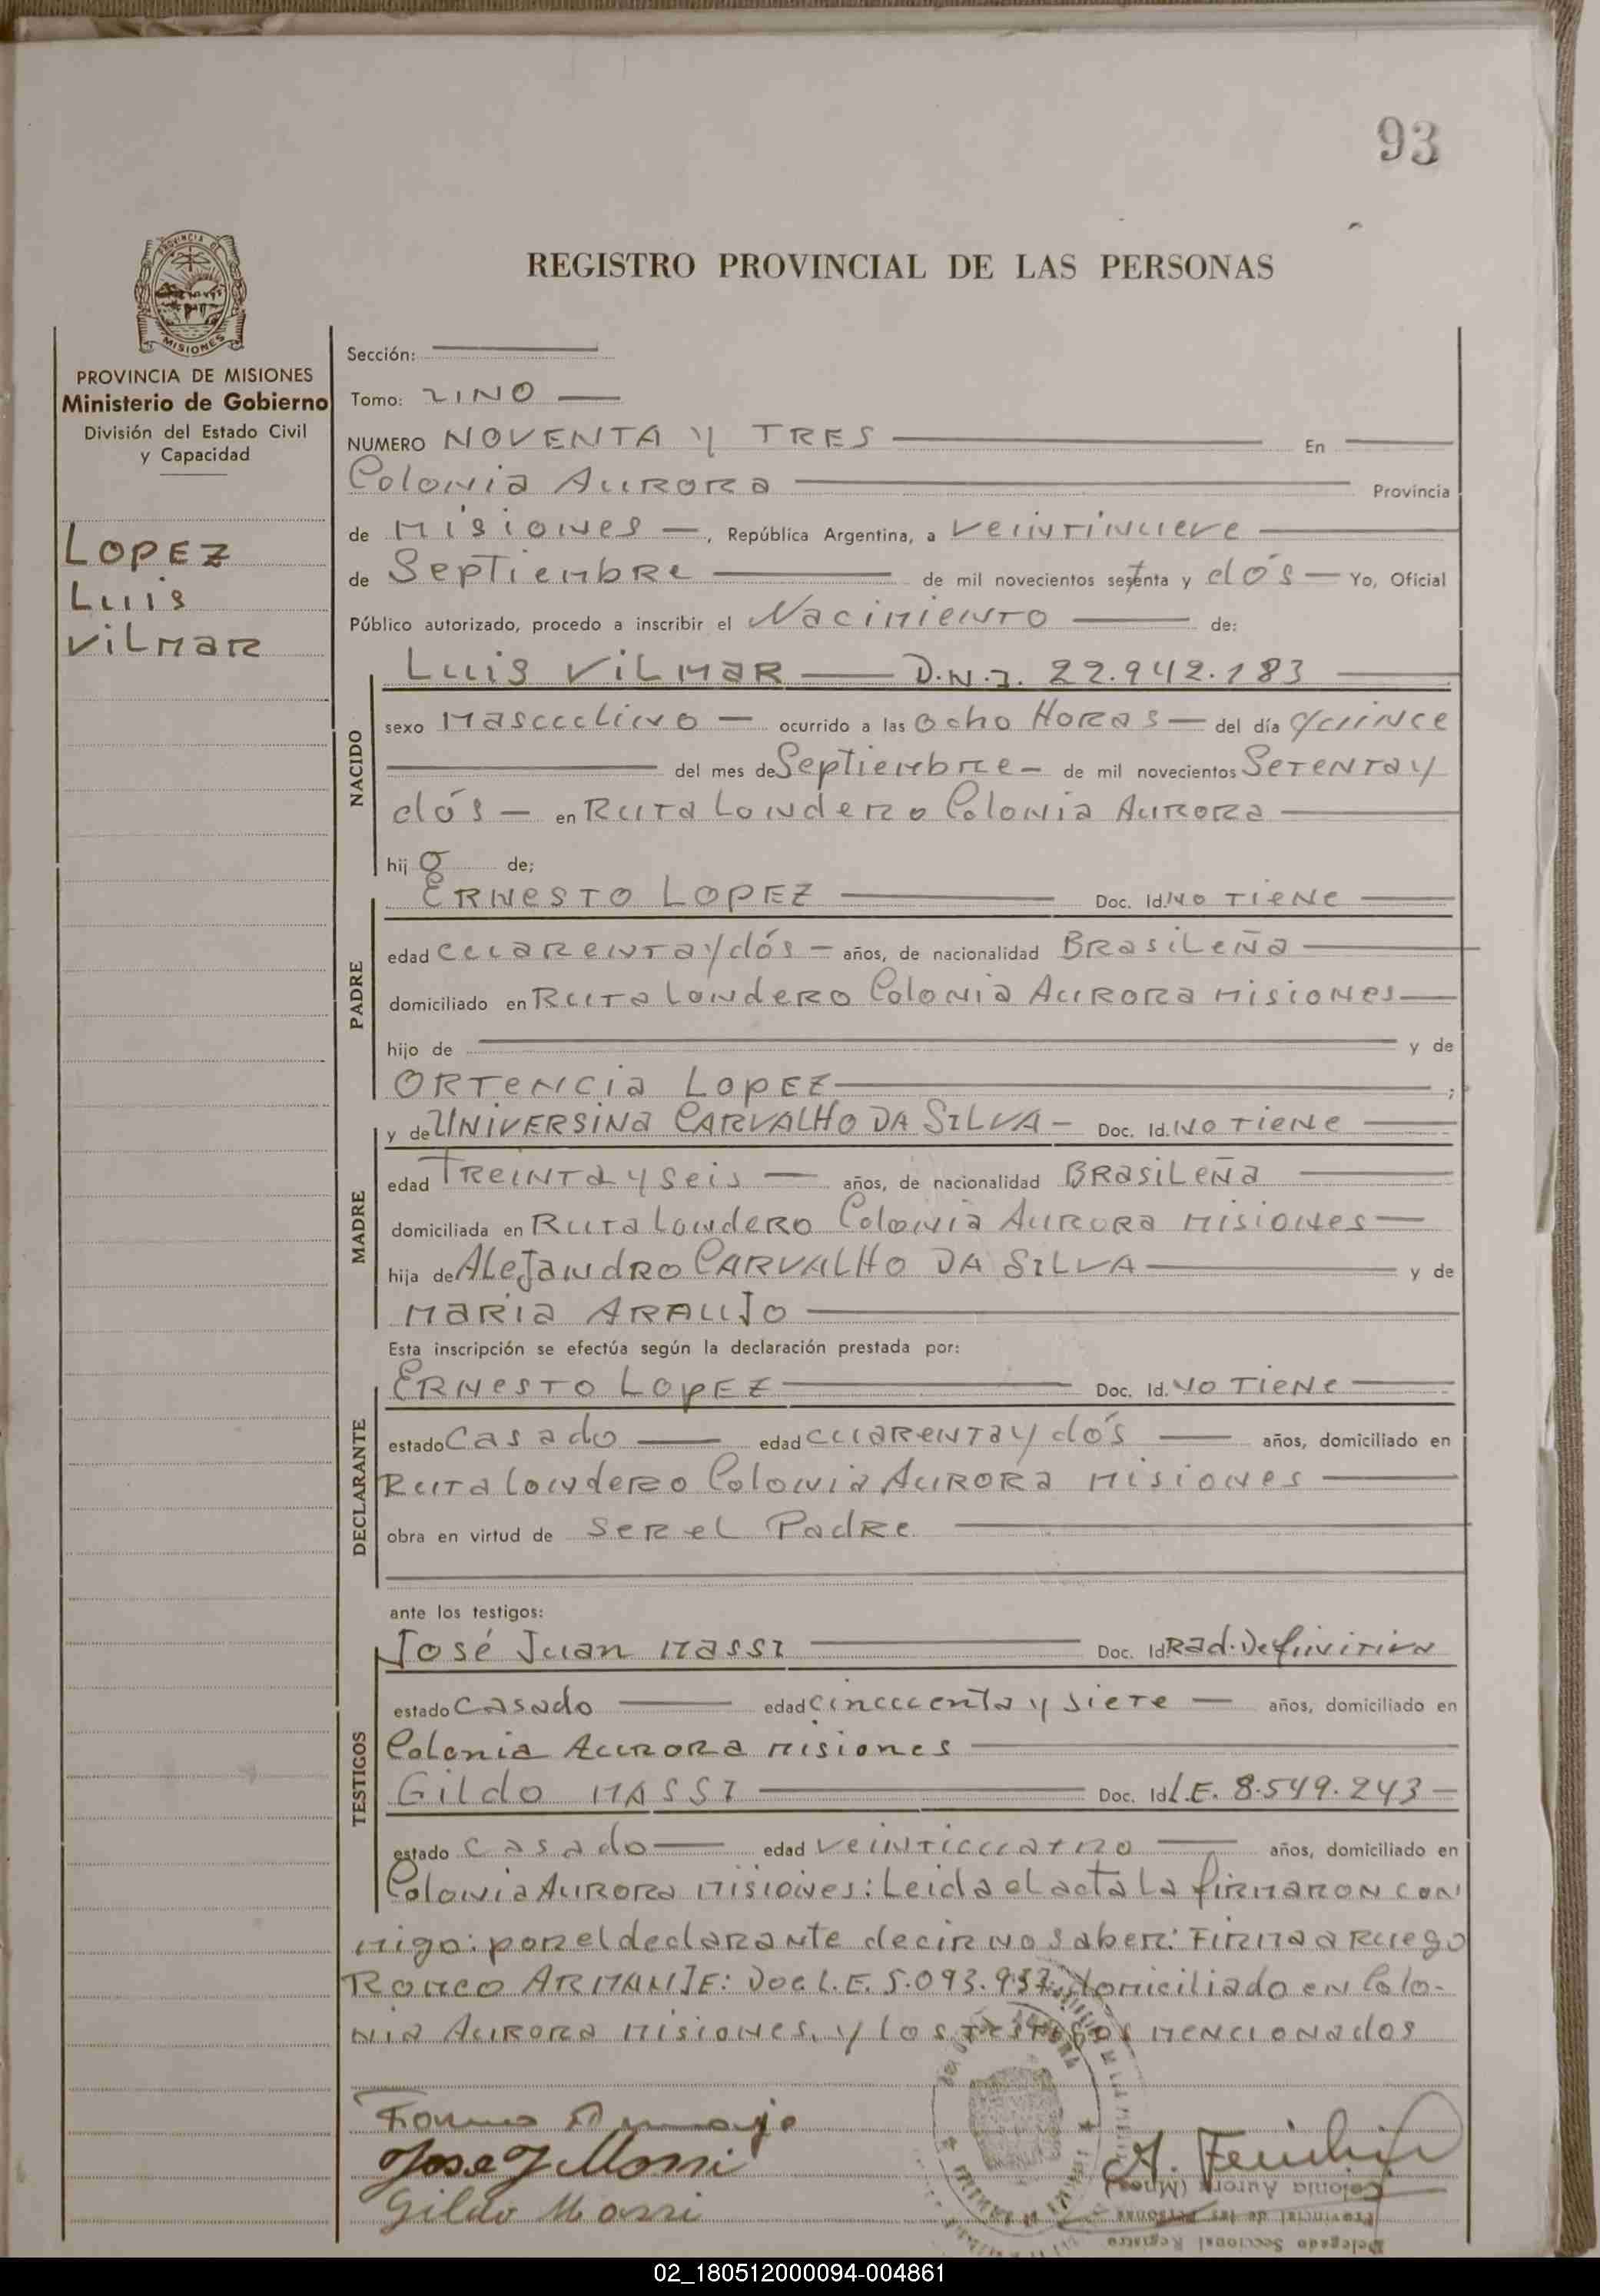 93
REGISTRO PROVINCIAL DE LAS PERSONAS
PROVINCIA DE
MISIONES
PROVINCIA DE MISIONES
Ministerio de Gobierno
División del Estado Civil
y Capacidad
LOPEZ
Luis
VILMAR
Sección:
Tomo: UNO
NUMERO NOVENTA Y TRES En
Colonia Aurora Provincia
de Misiones, República Argentina, a veintinueve
de Septiembre de mil novecientos setenta y dós Yo, Oficial
Público autorizado, procedo a inscribir el Nacimiento de:
Luis VILMAR D.N.I. 22.942.183
NACIDO
sexo Masculino ocurrido a las ocho Horas del día quince
del mes de Septiembre de mil novecientos Setenta y
dós en Ruta Londero Colonia Aurora
hijo de;
PADRE
ERNESTO LOPEZ Doc. Id. NO TIENE
edad cuarenta y dós años, de nacionalidad Brasileña
domiciliado en Ruta Londero Colonia Aurora Misiones
hijo de y de
ORTENCIA LOPEZ ;
MADRE
y de UNIVERSINA CARVALHO DA SILVA Doc. Id. NO TIENE
edad Treinta y seis años, de nacionalidad Brasileña
domiciliada en Ruta Londero Colonia Aurora Misiones
hija de Alejandro CARVALHO DA SILVA y de
MARIA ARAUJO
Esta inscripción se efectúa según la declaración prestada por:
DECLARANTE
ERNESTO LOPEZ Doc. Id. NO TIENE
estado Casado edad cuarenta y dós años, domiciliado en
Ruta Londero Colonia Aurora Misiones
obra en virtud de ser el Padre
ante los testigos:
TESTIGOS
José Juan MASSI Doc. Id. Rad. Definitiva
estado casado edad cincuenta y siete años, domiciliado en
Colonia Aurora Misiones
Gildo MASSI Doc. Id. L.E. 8.549.243
estado casado edad veinticuatro años, domiciliado en
Colonia Aurora Misiones: Leida el acta La firmaron con
migo: por el declarante decir no saber: Firma a Ruego
ARMANJE: Doc. L.E. 5.093.937. domiciliado en Colo-
nia Aurora Misiones, y los testigos mencionados
Jose J Massi
Gildo Massi
Delegado Seccional Registro
Provincial de las Personas
Colonia Aurora (Mnes)
02_180512000094-004861